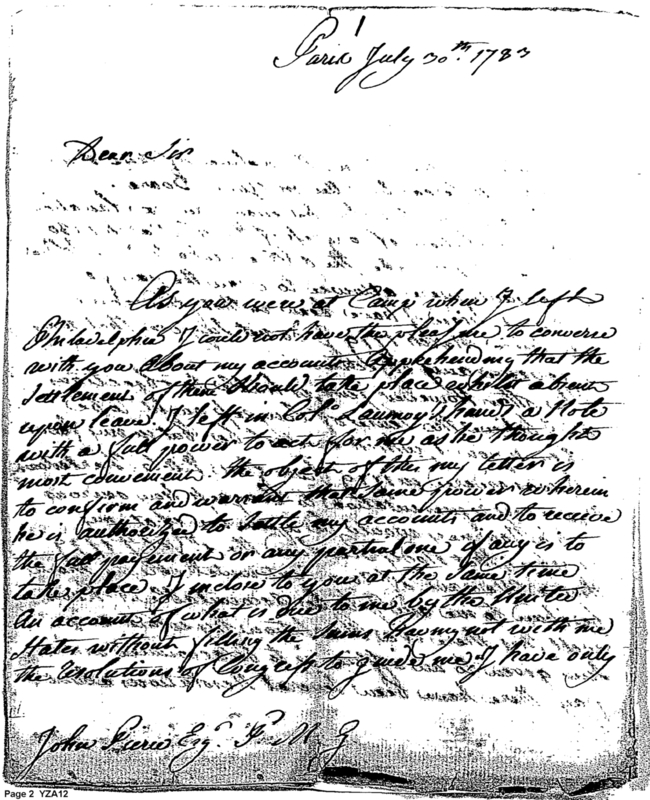 Paris July 30th. 1783
Dear Sir
As you were at Camp when I left
Philadelphia I could not have the pleasure to converse
with you about my accounts. Apprehending that the
Settlement of them should take place whilst absent
upon leave. I left in Col. Laumoy's hands a Note
with a full power to act for me as he thought
most convenient. the object of this my letter is
to confirm and warrant that same power wherein
he is authorized to settle my accounts and to receive
the full payment or any partial one if any is to
take place. I inclose to you at the same time
An account of what is due to me by the United
States without filling the Sums. Having not with me
the resolutions of Congress to guide me I have only
John Pierce Esqr. P. M. G
Page 2 YZA12